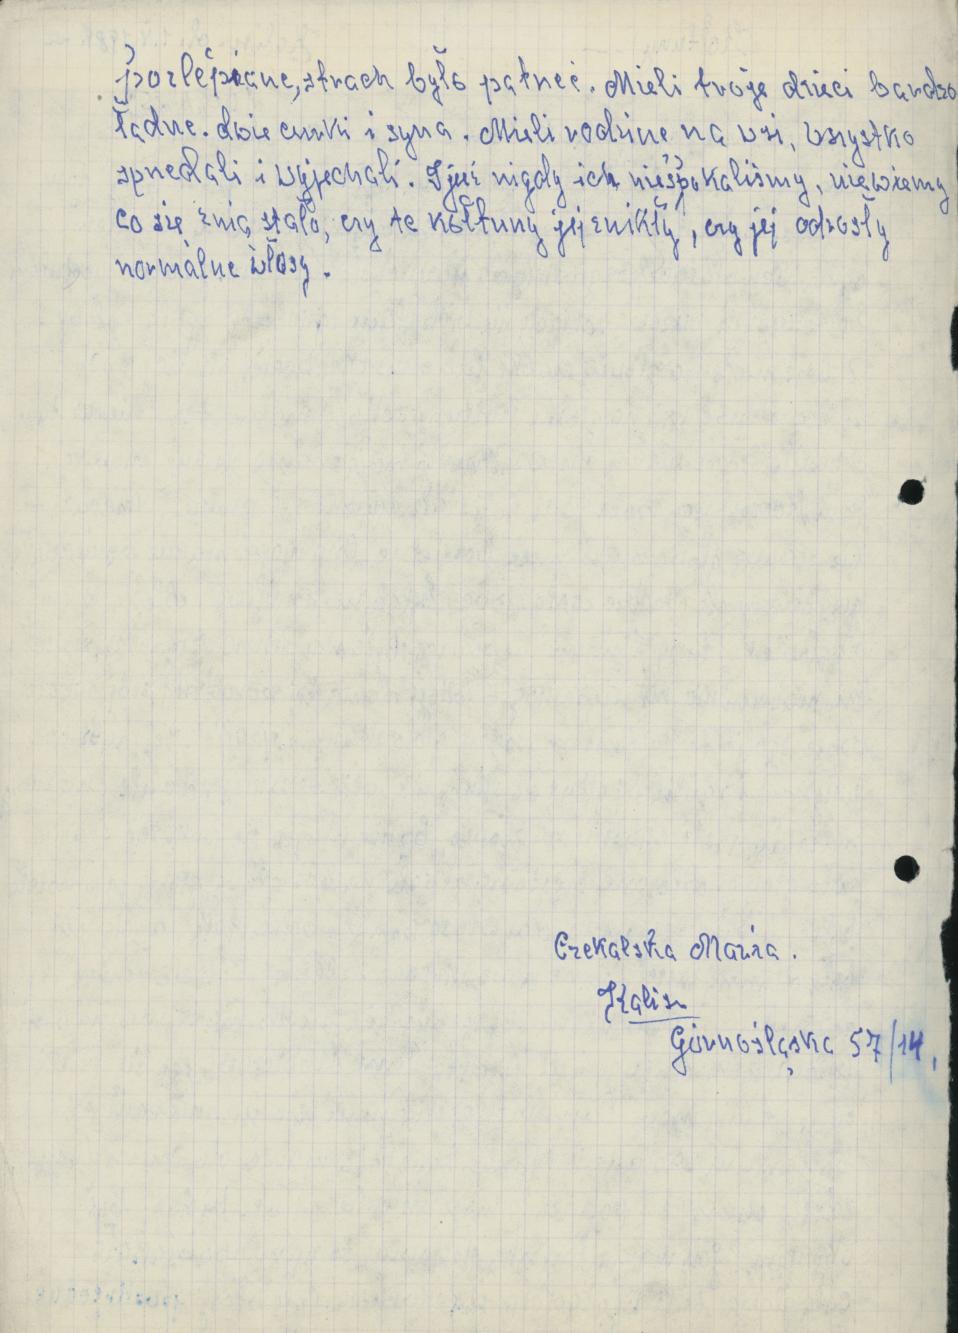 pozlepiane, strach było patrzeć. Mieli troje dzieci bardzo
ładne. dwie curki i syna. Mieli rodzine na wsi, wszystko
sprzedali i wyjechali. I już nigdy ich niespotkaliśmy, niewiemy
co się znią stało, czy te kołtuny jej znikły, czy jej odrosły
normalne włosy.
Czekalska Maria.
Kalisz
Górnośląska 57/14.